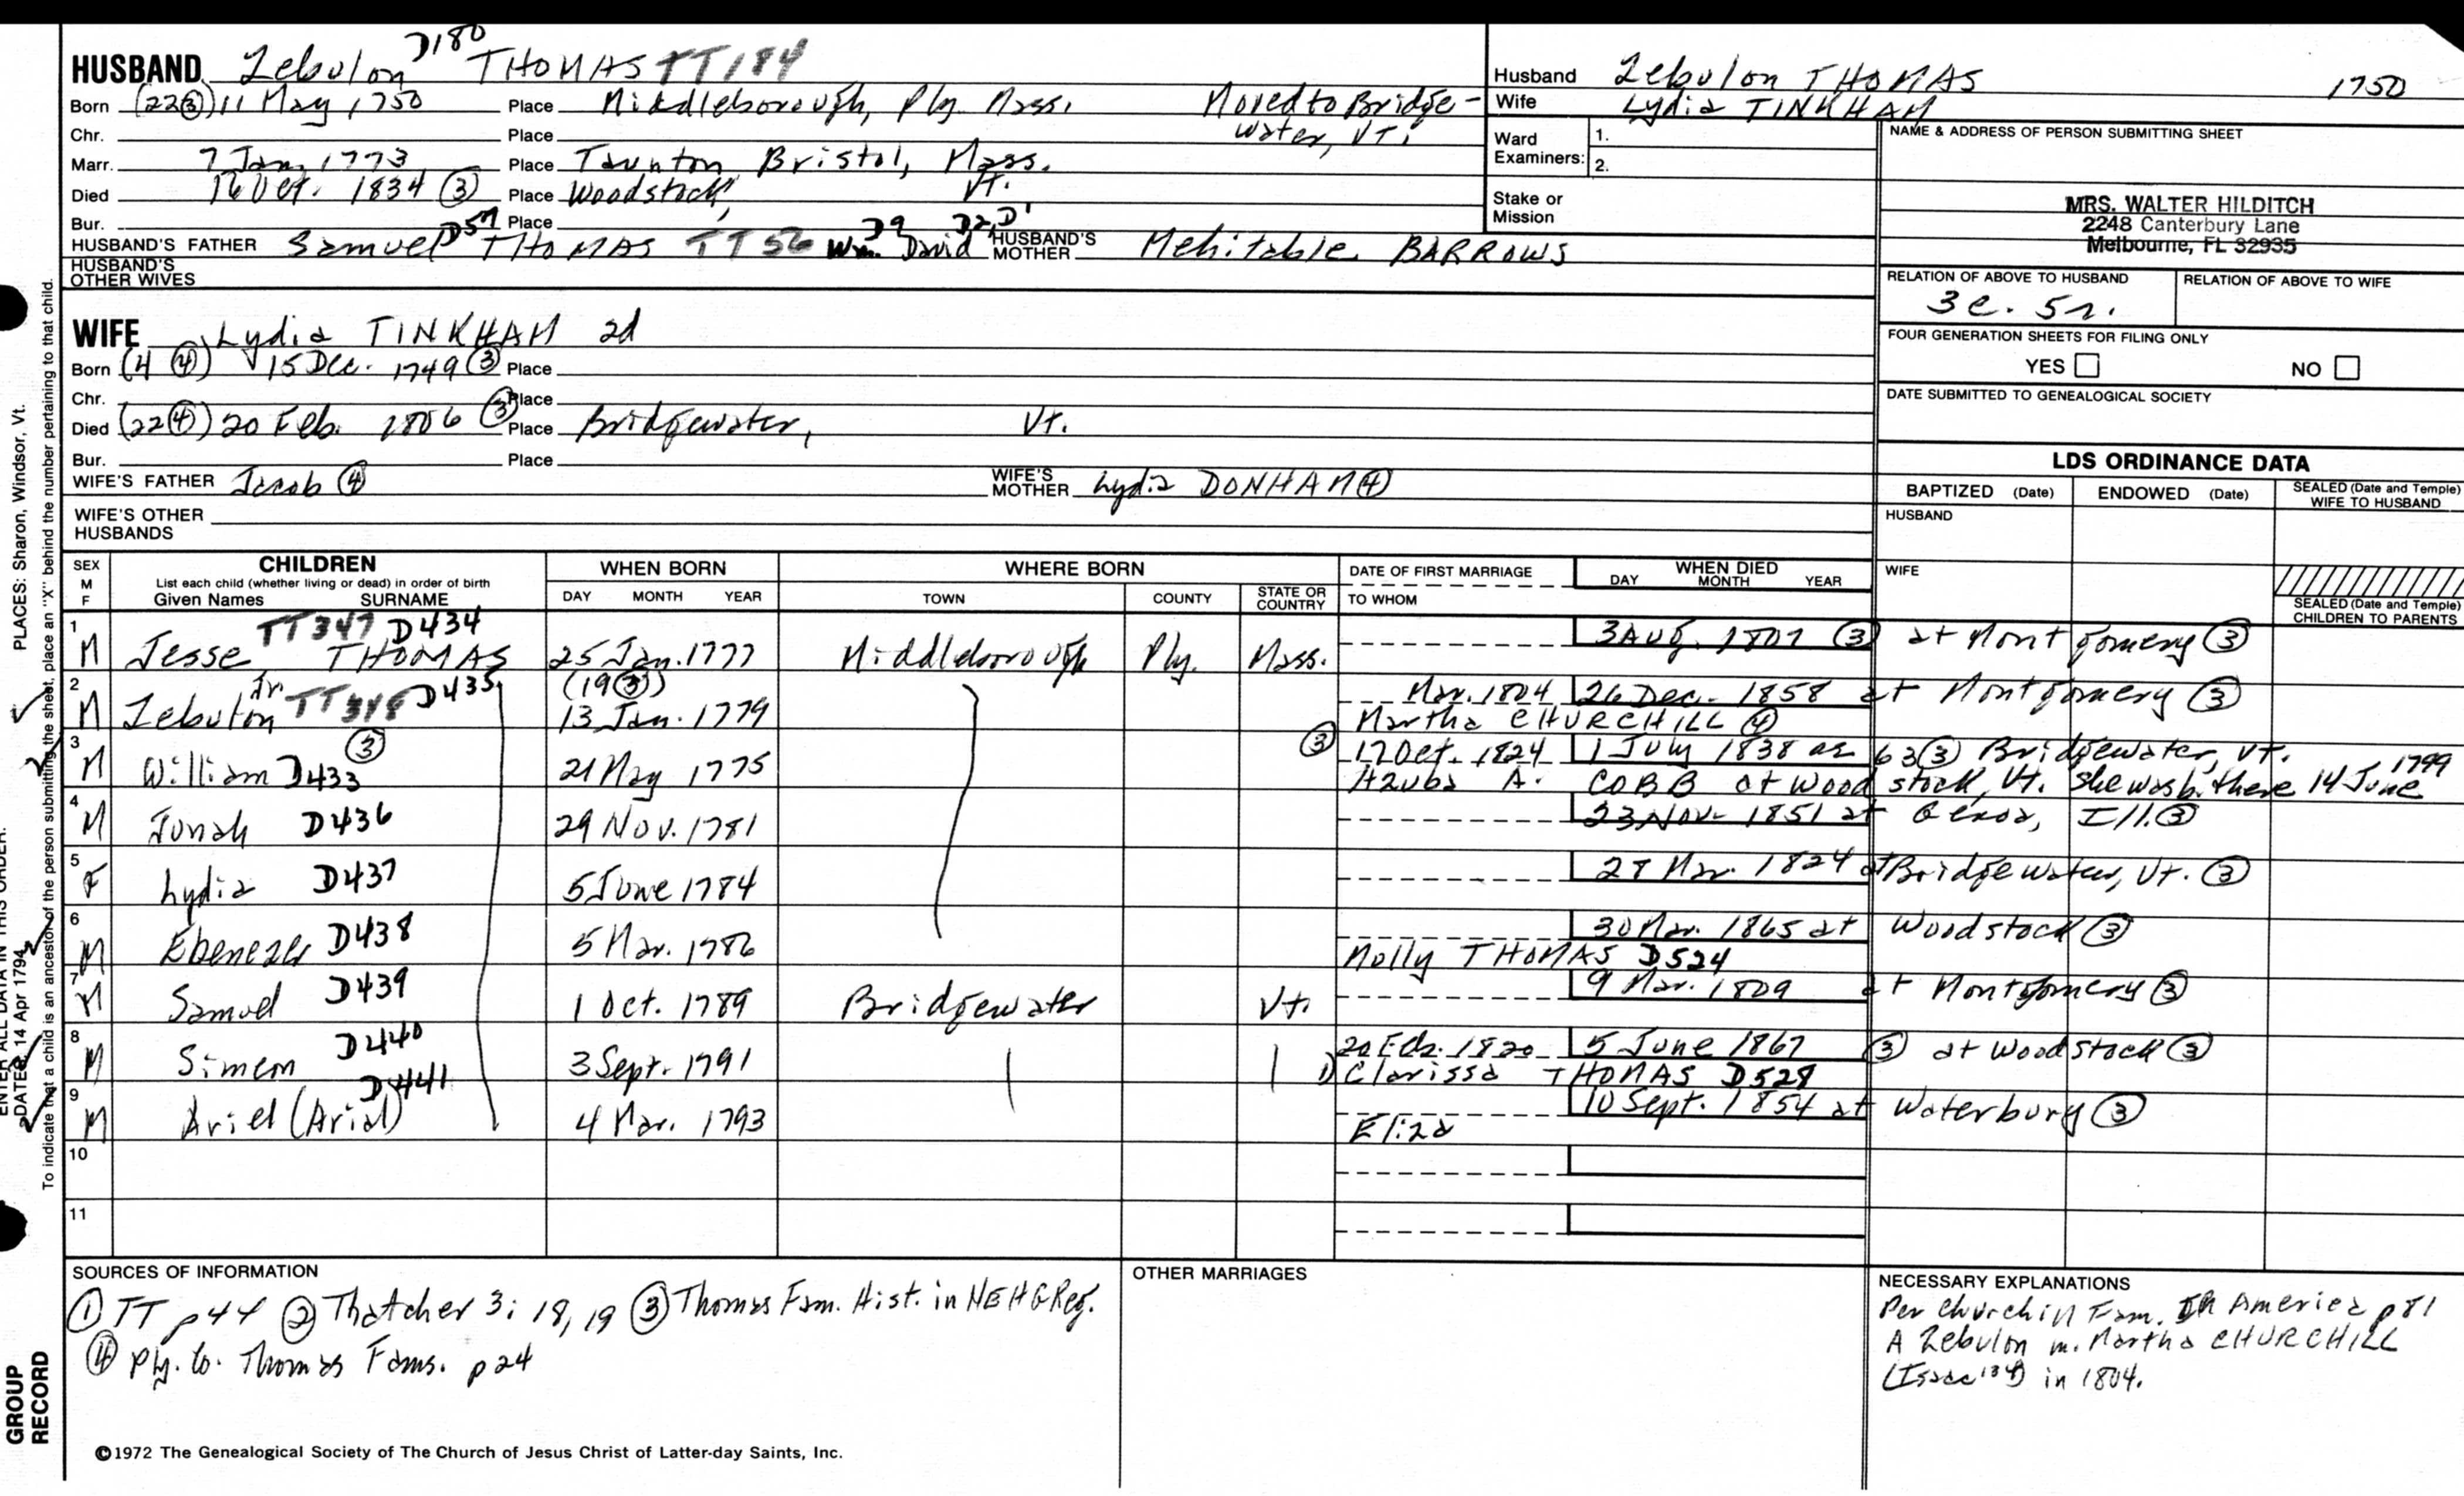 HUSBAND Zebulon D180 THOMAS TT184
Born (22③) 11 May 1750 Place Middleborough, Ply. Mass. Moved to Bridge-
Chr. Place water, VT.
Marr. 7 Jan. 1773 Place Taunton, Bristol, Mass.
Died 16 Oct. 1834 ③ Place Woodstock, Vt.
Bur. Place
HUSBAND'S FATHER Samuel D57 THOMAS TT56 Wm. D9 David D2, D1 HUSBAND'S MOTHER Mehitable BARROWS
HUSBAND'S OTHER WIVES
WIFE Lydia TINKHAM 2d
Born (4 ④) 15 Dec. 1749 ③ Place
Chr. Place
Died (22④) 20 Feb. 1806 ③ Place Bridgewater, Vt.
Bur. Place
WIFE'S FATHER Jacob ④ WIFE'S MOTHER Lydia DONHAM ④
WIFE'S OTHER HUSBANDS
Husband Zebulon THOMAS 1750
Wife Lydia TINKHAM
Ward Examiners: 1.
2.
Stake or Mission
NAME & ADDRESS OF PERSON SUBMITTING SHEET
MRS. WALTER HILDITCH
2248 Canterbury Lane
Melbourne, FL 32935
RELATION OF ABOVE TO HUSBAND RELATION OF ABOVE TO WIFE
3c. 5r.
FOUR GENERATION SHEETS FOR FILING ONLY
YES NO
DATE SUBMITTED TO GENEALOGICAL SOCIETY
LDS ORDINANCE DATA
BAPTIZED (Date) ENDOWED (Date) SEALED (Date and Temple) WIFE TO HUSBAND
HUSBAND
WIFE
SEALED (Date and Temple) CHILDREN TO PARENTS
SEX M F CHILDREN List each child (whether living or dead) in order of birth Given Names SURNAME WHEN BORN DAY MONTH YEAR WHERE BORN TOWN COUNTY STATE OR COUNTRY DATE OF FIRST MARRIAGE TO WHOM WHEN DIED DAY MONTH YEAR
1 M Jesse TT347 D434 THOMAS 25 Jan. 1777 Middleborough Ply. Mass. 3 Aug. 1807 ③ at Montgomery ③
2 M Zebulon Jr. TT348 D435 (19③) 13 Jan. 1779 Mar. 1804 26 Dec. 1858 at Montgomery ③
Martha CHURCHILL ④
3 M William ③ D433 21 May 1775 ③ 17 Oct. 1824 1 July 1838 ae 63 ③ Bridgewater, Vt.
Azuba A. COBB at Woodstock, Vt. She was b. there 14 June 1799
4 M Jonah D436 29 Nov. 1781 23 Nov. 1851 at Genoa, Ill. ③
5 F Lydia D437 5 June 1784 28 Mar. 1824 at Bridgewater, Vt. ③
6 M Ebenezer D438 5 Mar. 1786 30 Mar. 1865 at Woodstock ③
Molly THOMAS D524
7 M Samuel D439 1 Oct. 1789 Bridgewater Vt. 9 Mar. 1809 at Montgomery ③
8 M Simeon D440 3 Sept. 1791 20 Feb. 1820 5 June 1867 ③ at Woodstock ③
Clarissa THOMAS D528
9 M Ariel (Arial) D441 4 Mar. 1793 10 Sept. 1854 at Waterbury ③
Eliza
10
11
SOURCES OF INFORMATION
① TT p44 ② Thatcher 3: 18, 19 ③ Thomas Fam. Hist. in NEHGReg.
④ Ply. Co. Thomas Fams. p24
OTHER MARRIAGES
NECESSARY EXPLANATIONS
Per Churchill Fam. IN America p81
A Zebulon m. Martha CHURCHILL
(Isaac 134) in 1804.
©1972 The Genealogical Society of The Church of Jesus Christ of Latter-day Saints, Inc.
ENTER ALL DATA IN THIS ORDER:
DATES: 14 Apr 1794 PLACES: Sharon, Windsor, Vt.
To indicate that a child is an ancestor of the person submitting the sheet, place an "X" behind the number pertaining to that child.
GROUP RECORD